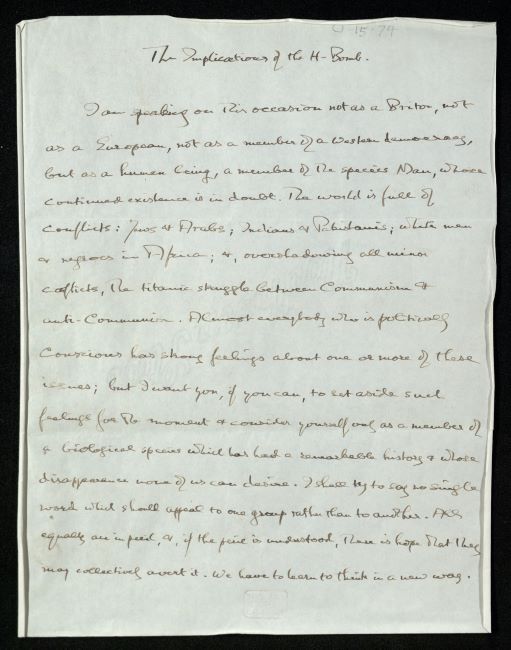 The Implications of the H-Bomb.
I am speaking on this occasion not as a Briton, not
as a European, not as a member of a western democracy,
but as a human being, a member of the species Man, whose
continued existence is in doubt. The world is full of
conflicts: Jews & Arabs; Indians & Pakistanis; white men
& negroes in Africa; &, overshadowing all minor
conflicts, the titanic struggle between Communism &
anti-Communism. Almost everybody who is politically
conscious has strong feelings about one or more of these
issues; but I want you, if you can, to set aside such
feelings for the moment & consider yourself only as a member of
a biological species which has had a remarkable history & whose
disappearance none of us can desire. I shall try to say no single
word which should appeal to one group rather than to another. All
equally are in peril, &, if the peril is understood, there is hope that they
may collectively avert it. We have to learn to think in a new way.